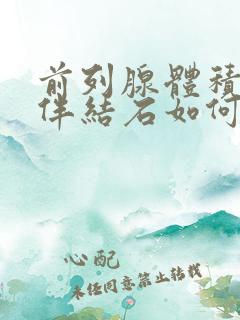 前列腺體積
伴結石如何
心配
未经同意禁止转载